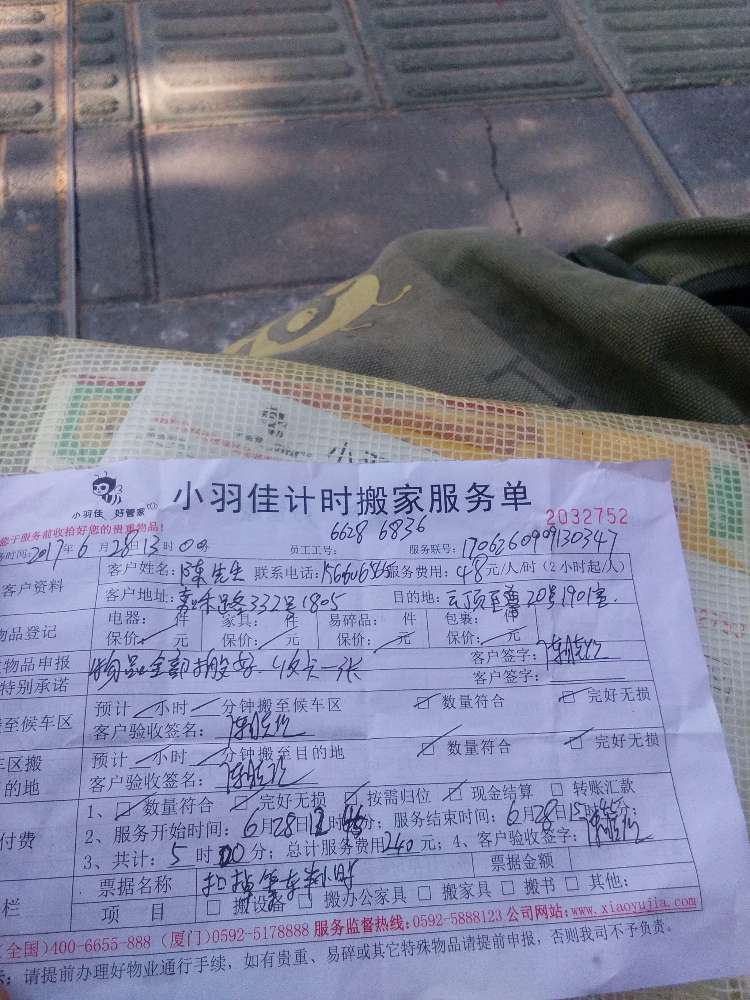 小羽佳 好管家
小羽佳计时搬家服务单
2032752
您于服务前收拾好您的贵重物品!
6628 6836
务时间:2017年6月28日13时00分
员工工号:
服务联号:170626099130347
客户资料
客户姓名:陈先生 联系电话: 服务费用:48元/人/时(2小时起/人)
客户地址:嘉禾路332号1805 目的地:云顶至尊20号1901室
物品登记
电器: 件 家具: 件 易碎品: 件 包装: 件
保价: 元 保价: 元 保价: 元 保价: 元
物品申报
特别承诺
物品全部搬好.收点一张
客户签字:
客户签字:
至候车区
预计 小时 分钟搬至候车区 数量符合 完好无损
客户验收签名:
车区搬
的地
预计 小时 分钟搬至目的地 数量符合 完好无损
客户验收签名:
付费
1、 数量符合 完好无损 按需归位 现金结算 转账汇款
2、服务开始时间:6月28日 时 分; 服务结束时间:6月28日15时45分;
3、共计:5时00分; 总计服务费用240元; 4、客户验收签字:
栏
票据名称 票据金额
项 目 搬设备 搬办公家具 搬家具 搬书 其他:
(全国)400-6655-888 (厦门)0592-5178888 服务监督热线:0592-5888123 公司网站:www.xiaoyujia.com
示:请提前办理好物业通行手续,如有贵重、易碎或其它特殊物品请提前申报,否则我司不予负责。